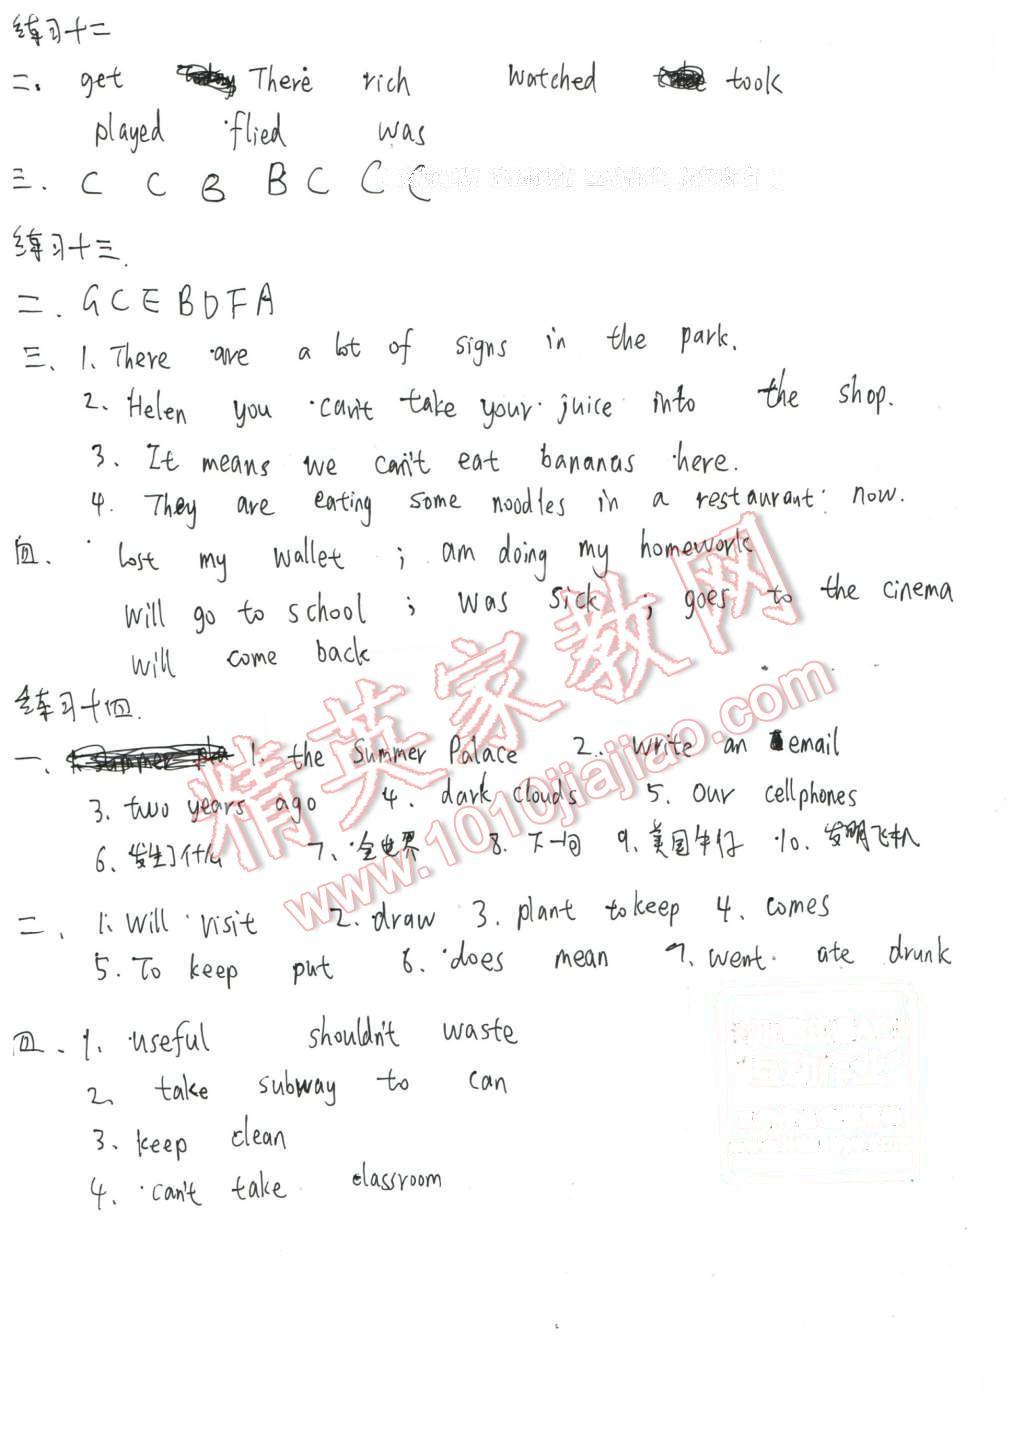 练习十二
二. get There rich watched took
played flied was
三. C C B B C C C
练习十三.
二. G C E B D F A
三. 1. There are a lot of signs in the park.
2. Helen you can't take your juice into the shop.
3. It means we can't eat bananas here.
4. They are eating some noodles in a restaurant now.
四. lost my wallet ; am doing my homework
will go to school ; was sick ; goes to the cinema
will come back
练习十四.
一. 1. the Summer Palace 2. write an email
3. two years ago 4. dark clouds 5. Our cellphones
6. 发生了什么 7. 全世界 8. 下一回 9. 美国牛仔 10. 发明飞机
二. 1. will visit 2. draw 3. plant to keep 4. comes
5. To keep put 6. does mean 7. went ate drunk
四. 1. useful shouldn't waste
2. take subway to can
3. keep clean
4. can't take classroom
精英家教网
www.1010jiajiao.com